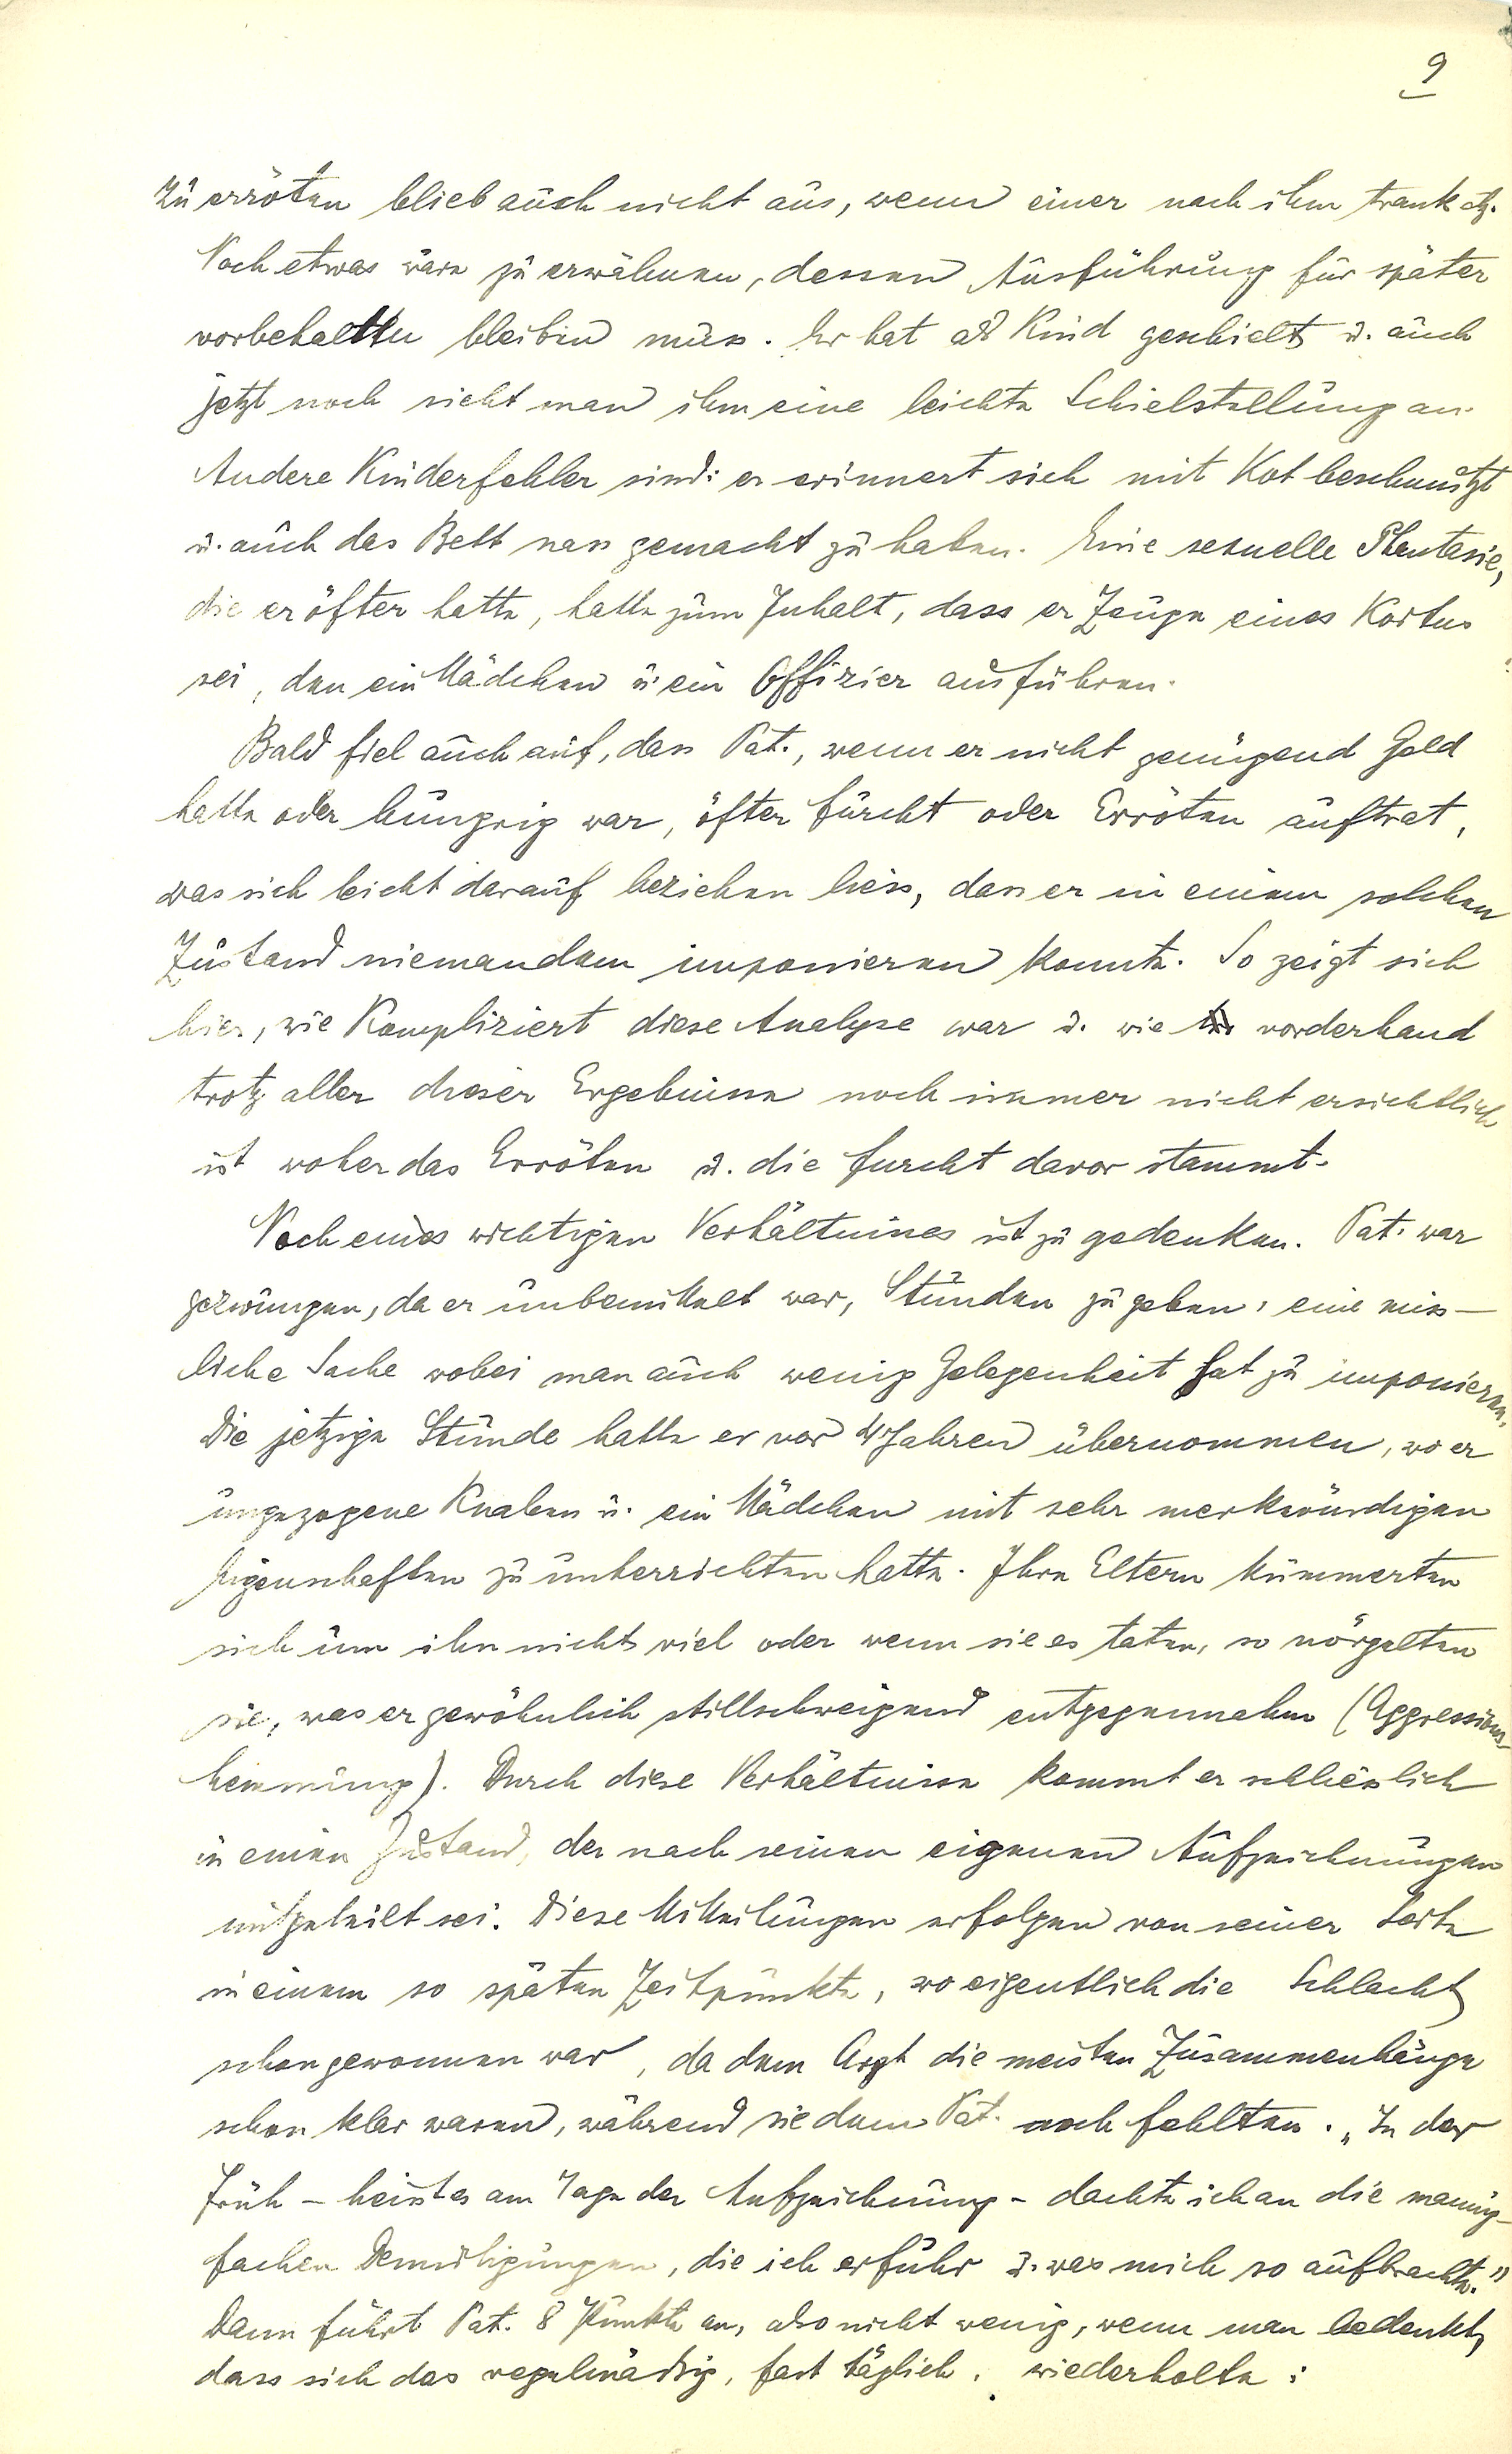 9
zu erröten blieb auch nicht aus, wenn einer nach ihm trank etz.
Noch etwas wäre zu erwähnen, dessen Ausführung für später
vorbehalten bleiben muss. Er hat als Kind geschielt u. auch
jetzt noch sieht man ihm eine leichte Schielstellung an.
Andere Kinderfehler sind: er erinnert sich mit Kot beschmutzt
u. auch das Bett nass gemacht zu haben. Eine sexuelle Phantasie,
die er öfter hatte, hatte zum Inhalt, dass er Zeuge eines Koitus
sei, den ein Mädchen u. ein Offizier ausführen.
Bald fiel auch auf, dass Pat., wenn er nicht genügend Geld
hatte oder hungrig war, öfter Furcht oder Erröten auftrat,
was sich leicht darauf beziehen liess, dass er in einem solchen
Zustand niemandem imponieren konnte. So zeigt sich
hier, wie kompliziert diese Analyse war u. wie vorderhand
trotz aller dieser Ergebnisse noch immer nicht ersichtlich
ist woher das Erröten u. die Furcht davor stammt.
Noch eines wichtigen Verhältnises ist zu gedenken. Pat. war
gezwungen, da er unbemittelt war, Stunden zu geben, eine miss-
liche Sache wobei man auch wenig Gelegenheit hat zu imponieren.
Die jetzige Stunde hatte er vor 4 Jahren übernommen, wo er
ungezogene Knaben u. ein Mädchen mit sehr merkwürdigen
Eigenschaften zu unterrichten hatte. Ihre Eltern kümmerten
sich um ihn nicht viel oder wenn sie es taten, so nörgelten
sie, was er gewöhnlich stillschweigend entgegennahm (Aggressions-
hemmung). Durch diese Verhältnisse kommt er schliesslich
in einen Zustand, der nach seinen eigenen Aufzeichnungen
mitgeteilt sei. Diese Mitteilungen erfolgen von seiner Seite
in einem so späten Zeitpunkte, wo eigentlich die Schlacht
schon gewonnen war, da dem Arzt die meisten Zusammenhänge
schon klar waren, während sie dem Pat. noch fehlten. „In der
Früh – heisst es am Tage der Aufzeichnung – dachte ich an die mannig-
fachen Demütigungen, die ich erfuhr u. was mich so aufbrachte."
Dann führt Pat. 8 Punkte an, also nicht wenig, wenn man bedenkt,
dass sich das regelmässig, fast täglich, wiederholte: